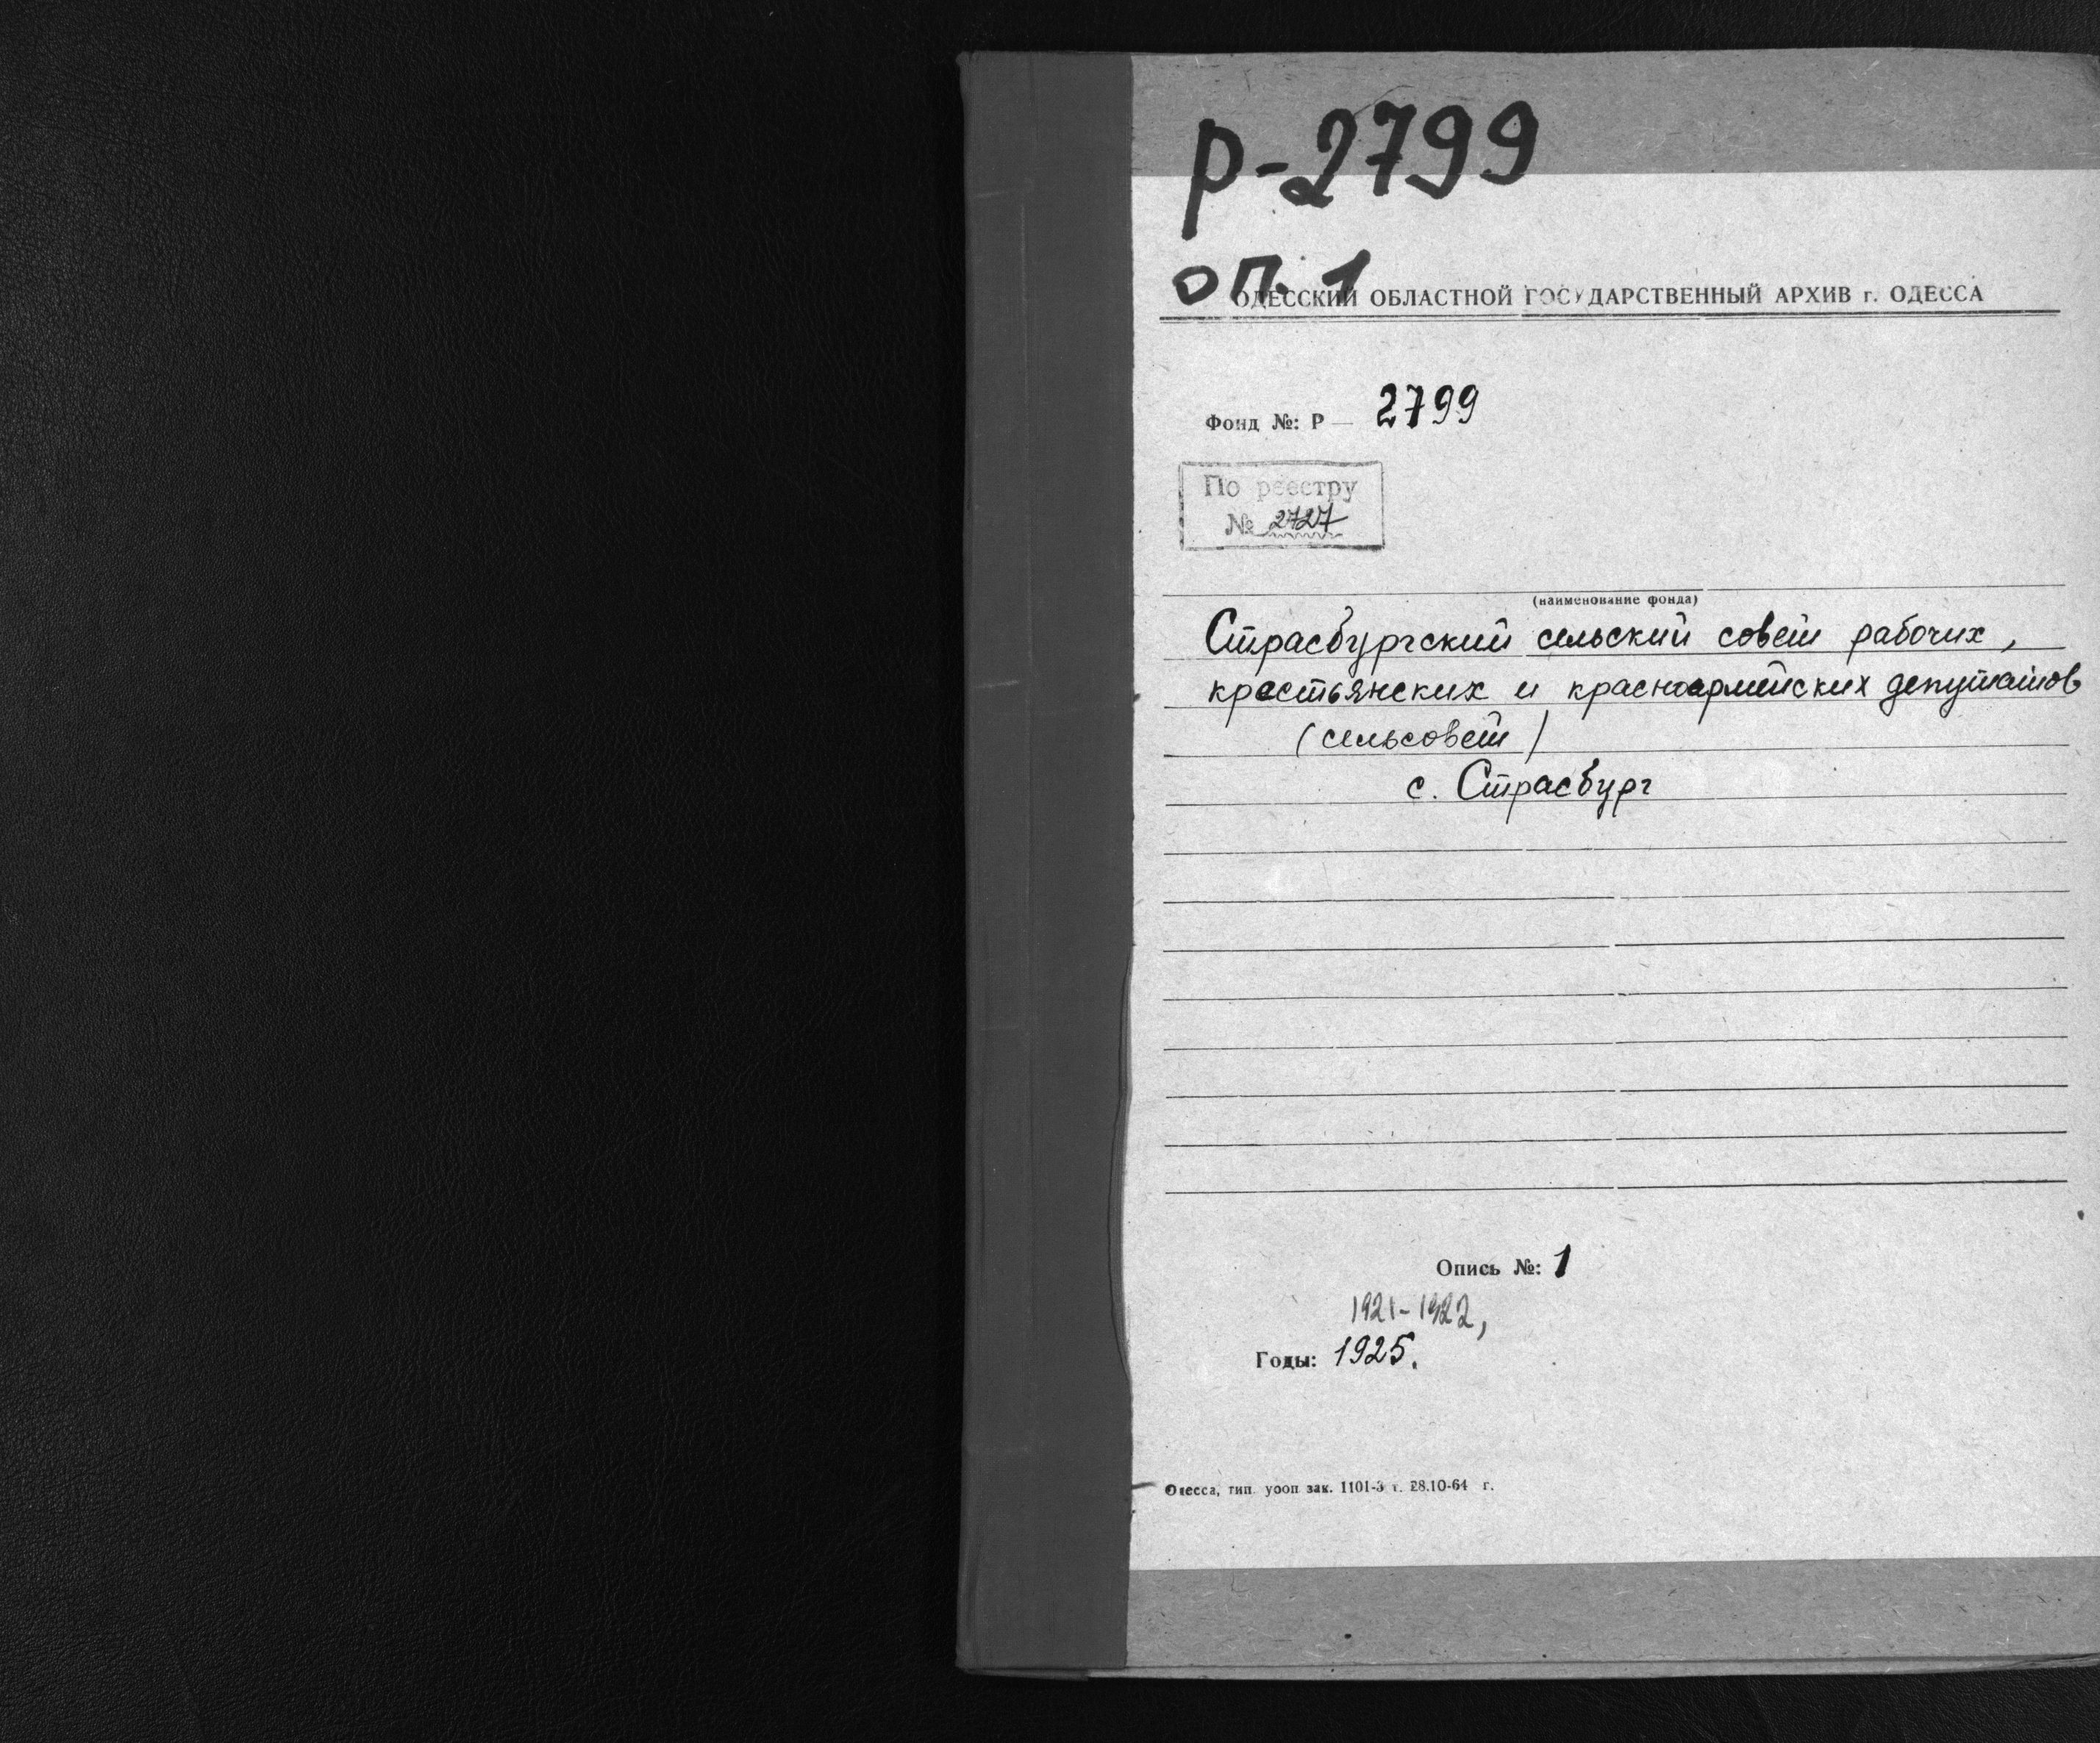 Р-2799
оп. 1
ОДЕССКИЙ ОБЛАСТНОЙ ГОСУДАРСТВЕННЫЙ АРХИВ г. ОДЕССА
Фонд №: Р — 2799
По реестру
№ 2727
(наименование фонда)
Страсбургский сельский совет рабочих,
крестьянских и красноармейских депутатов
(сельсовет)
с. Страсбург
Опись №: 1
1921-1922,
Годы: 1925.
Одесса, тип. уооп зак. 1101-3 т. 28.10-64 г.